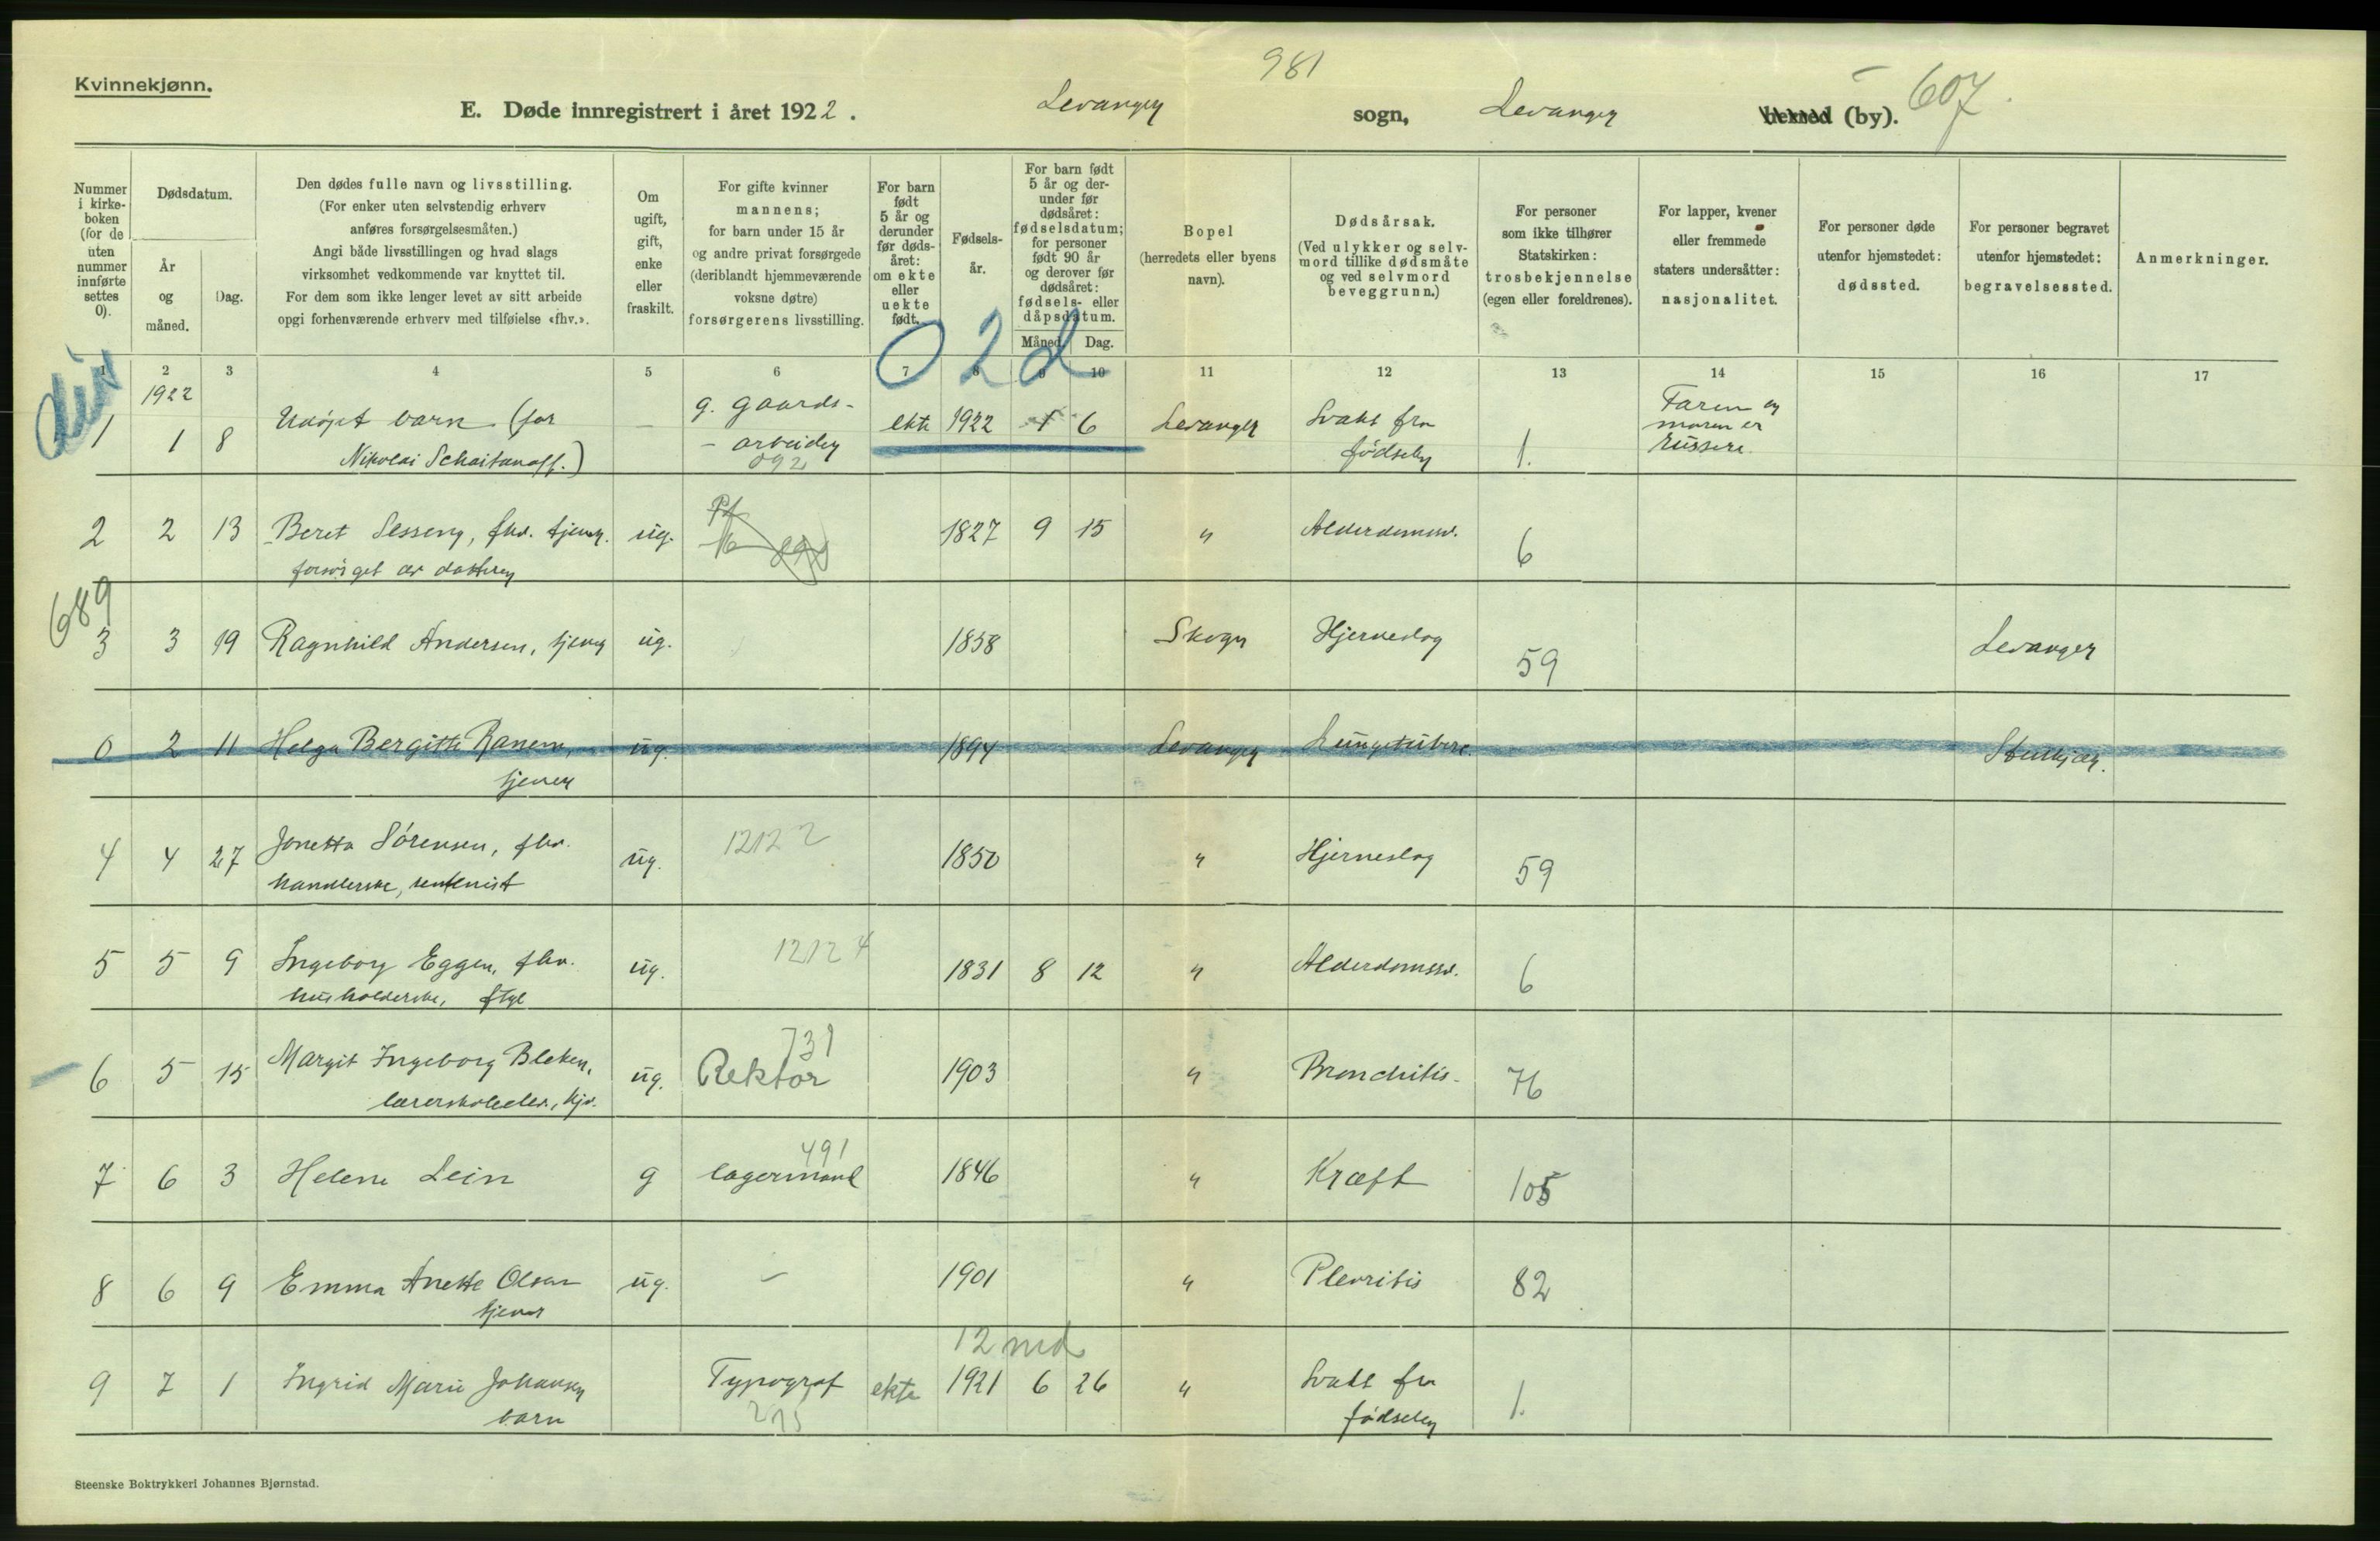 981
Kvinnekjønn.
E. Døde innregistrert i året 1922. Levanger sogn, Levanger herred (by). 607.
Nummer i kirke-boken (for de uten nummer innførte settes 0).
Dødsdatum.
År og måned.
Dag.
Den dødes fulle navn og livsstilling.
(For enker uten selvstendig erhverv anføres forsørgelsesmåten.)
Angi både livsstillingen og hvad slags virksomhet vedkommende var knyttet til.
For dem som ikke lenger levet av sitt arbeide opgi forhenværende erhverv med tilføielse «fhv.».
Om ugift, gift, enke eller fraskilt.
For gifte kvinner mannens; for barn under 15 år og andre privat forsørgede (deriblandt hjemmeværende voksne døtre) forsørgerens livsstilling.
For barn født 5 år og derunder før døds-året: om ekte eller uekte født.
Fødsels-år.
For barn født 5 år og der-under før dødsåret: fødselsdatum; for personer født 90 år og derover før dødsåret: fødsels- eller dåpsdatum.
Måned. Dag.
Bopel (herredets eller byens navn).
Dødsårsak.
(Ved ulykker og selv-mord tillike dødsmåte og ved selvmord beveggrunn.)
For personer som ikke tilhører Statskirken: trosbekjennelse (egen eller foreldrenes).
For lapper, kvener eller fremmede staters undersåtter: nasjonalitet.
For personer døde utenfor hjemstedet: dødssted.
For personer begravet utenfor hjemstedet: begravelsessted.
Anmerkninger.
02d
1 2 3 4 5 6 7 8 9 10 11 12 13 14 15 16 17
1922
1 1 8 Udøpt barn (far — g. gaards- ekte 1922 1 6 Levanger Svakt fra 1. Faren og
Nikolai Schaitanoff.) - arbeider fødselen moren er
092 russere.
2 2 13 Beret Sesseng, fhv. tjener. ug. 1827 9 15 " Alderdomssv. 6
forsørget av datteren
689
3 3 19 Ragnhild Andersen, tjener ug. 1858 Skogn Hjerneslag 59 Levanger
0 2 11 Helga Bergitte Ranem, ug. 1894 Levanger Lungetuberc. Stenkjær.
tjener
4 4 27 Jonetta Sørensen, fhv. ug. 12122 1850 " Hjerneslag 59
handlerske, rentenist
5 5 9 Ingeborg Eggen, fhv. ug. 12124 1831 8 12 " Alderdomssv. 6
husholderske, ftgl
731
6 5 15 Margit Ingeborg Bleken, ug. Rektor 1903 " Bronchitis. 76
lærerskoleelev, hjv.
491
7 6 3 Helene Lein g lagermand 1846 " Kræft 105
8 6 9 Emma Anette Olsen ug. — 1901 " Plevritis 82
tjener
12 md
9 7 1 Ingrid Marie Johansen Typograf ekte 1921 6 26 " Svakt fra 1.
barn 215 fødselen
Steenske Boktrykkeri Johannes Bjørnstad.